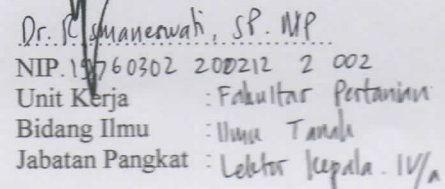 Dr. Ismanerwati, SP. MP
NIP. 19760302 200212 2 002
Unit Kerja : Fakultas Pertanian
Bidang Ilmu : Ilmu Tanah
Jabatan Pangkat : Lektor Kepala. IV/a